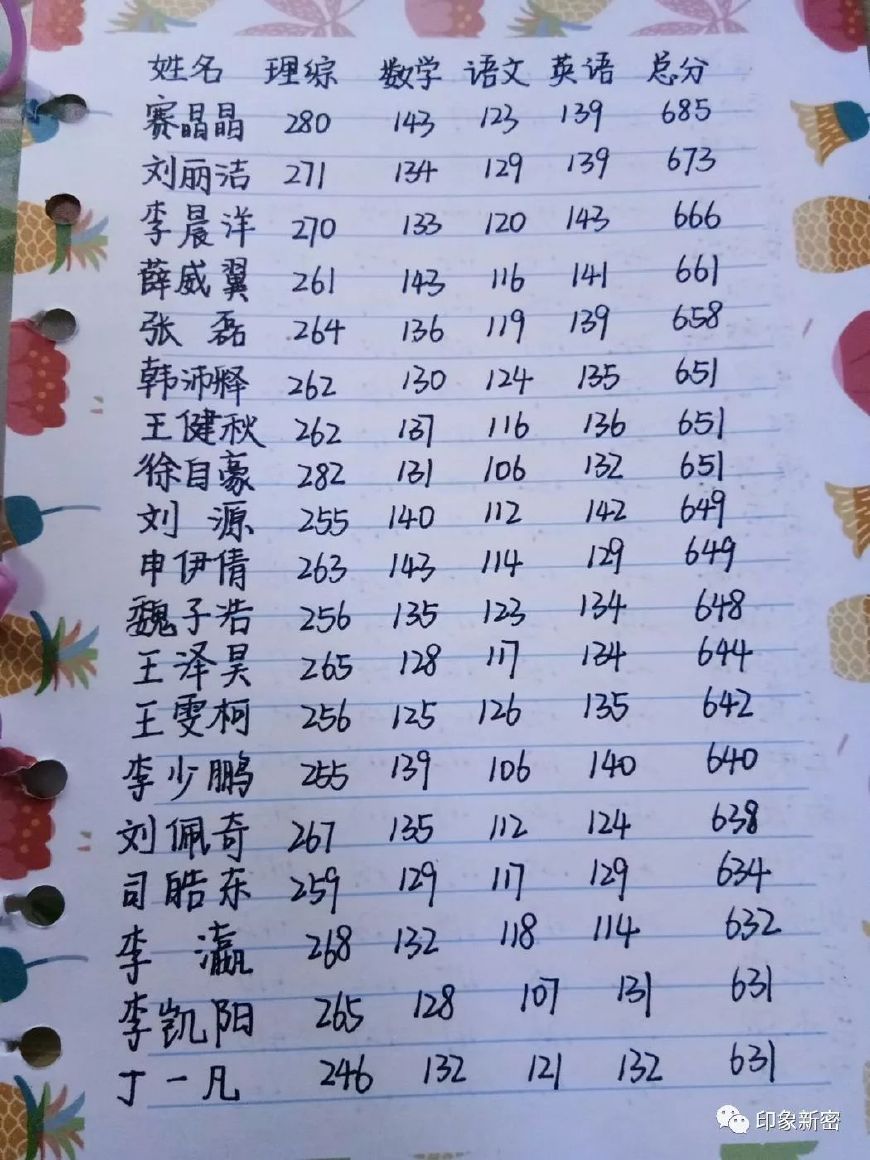 姓名 理综 数学 语文 英语 总分
赛晶晶 280 143 123 139 685
刘丽洁 271 134 129 139 673
李晨洋 270 133 120 143 666
薛威翼 261 143 116 141 661
张磊 264 136 119 139 658
韩沛释 262 130 124 135 651
王健秋 262 137 116 136 651
徐自豪 282 131 106 132 651
刘源 255 140 112 142 649
申伊倩 263 143 114 129 649
魏子浩 256 135 123 134 648
王泽昊 265 128 117 134 644
王雯柯 256 125 126 135 642
李少鹏 255 139 106 140 640
刘佩奇 267 135 112 124 638
司皓东 259 129 117 129 634
李瀛 268 132 118 114 632
李凯阳 265 128 107 131 631
丁一凡 246 132 121 132 631
印象新密